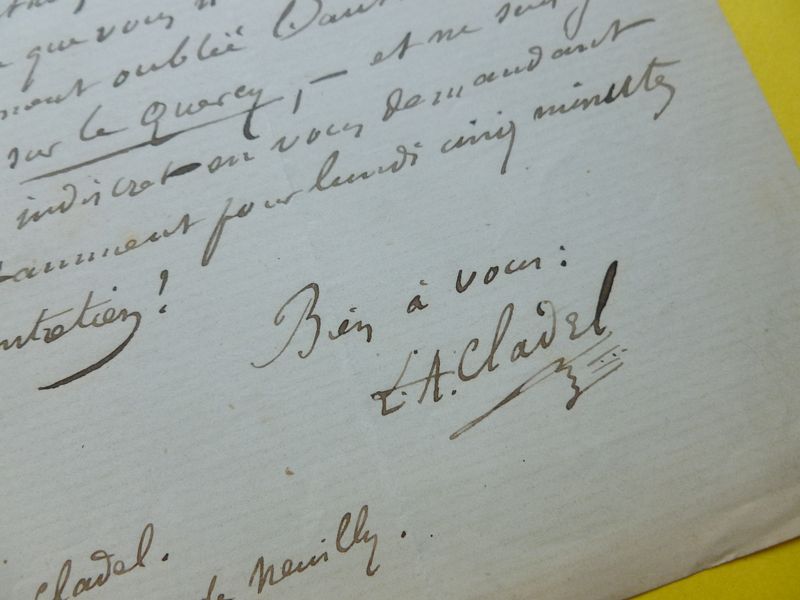 que vous
oublié
sur le Quercy, — et ne
indiscret en vous demandant
pour lundi cinq minutes
Bien à vous:
L. A. Cladel
Cladel.
de Neuilly.